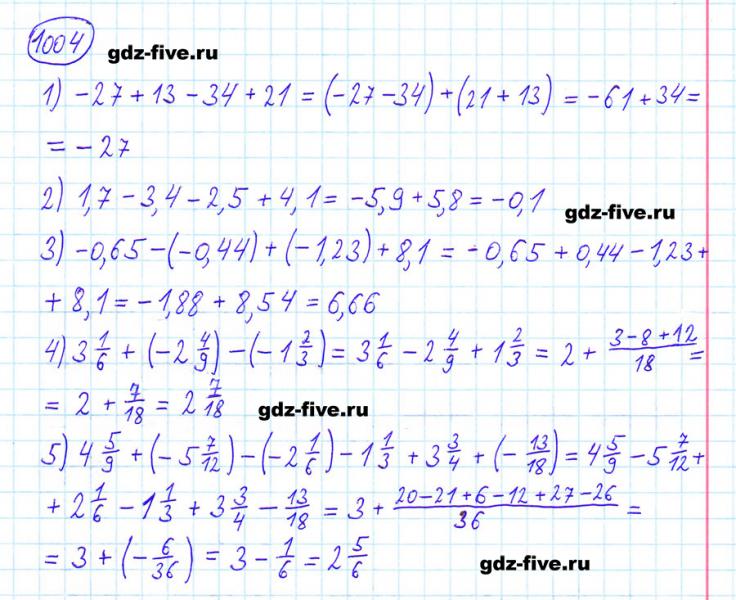 1004
gdz-five.ru
1) -27 + 13 - 34 + 21 = (-27 - 34) + (21 + 13) = -61 + 34 =
= -27
2) 1,7 - 3,4 - 2,5 + 4,1 = -5,9 + 5,8 = -0,1
gdz-five.ru
3) -0,65 - (-0,44) + (-1,23) + 8,1 = -0,65 + 0,44 - 1,23 +
+ 8,1 = -1,88 + 8,54 = 6,66
4) 3 1/6 + (-2 4/9) - (-1 2/3) = 3 1/6 - 2 4/9 + 1 2/3 = 2 + (3 - 8 + 12)/18 =
= 2 + 7/18 = 2 7/18
gdz-five.ru
5) 4 5/9 + (-5 7/12) - (-2 1/6) - 1 1/3 + 3 3/4 + (-13/18) = 4 5/9 - 5 7/12 +
+ 2 1/6 - 1 1/3 + 3 3/4 - 13/18 = 3 + (20 - 21 + 6 - 12 + 27 - 26)/36 =
= 3 + (-6/36) = 3 - 1/6 = 2 5/6
gdz-five.ru